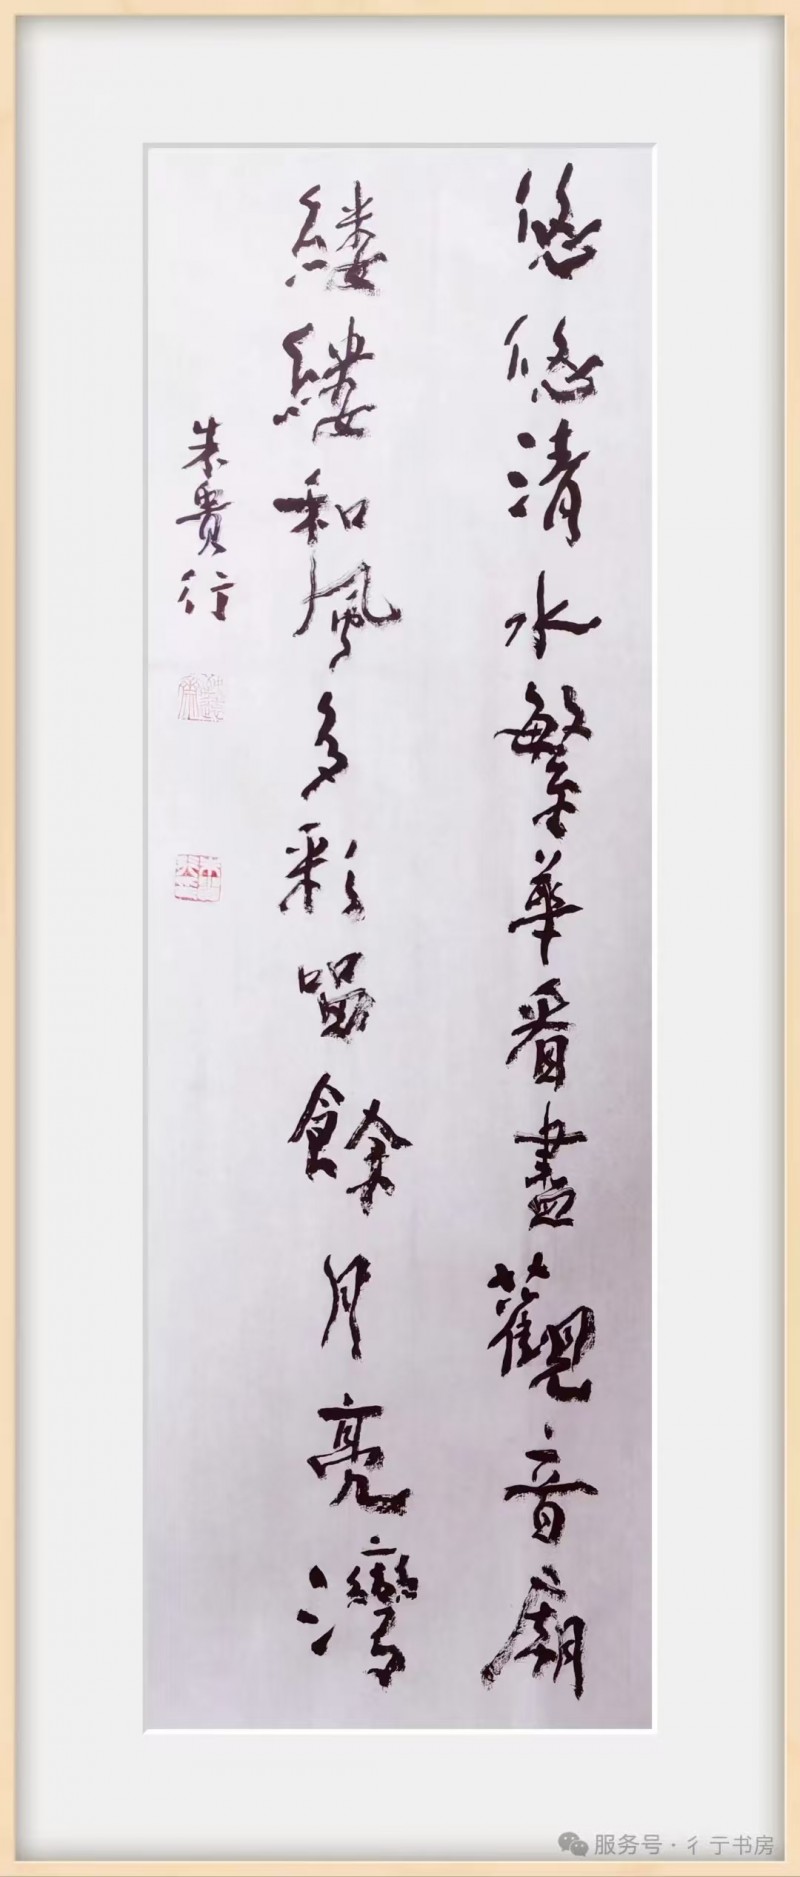 悠悠清水繁華看盡觀音廟
縷縷和風多彩留餘月亮灣
朱貴行
服务号 · 彳亍书房